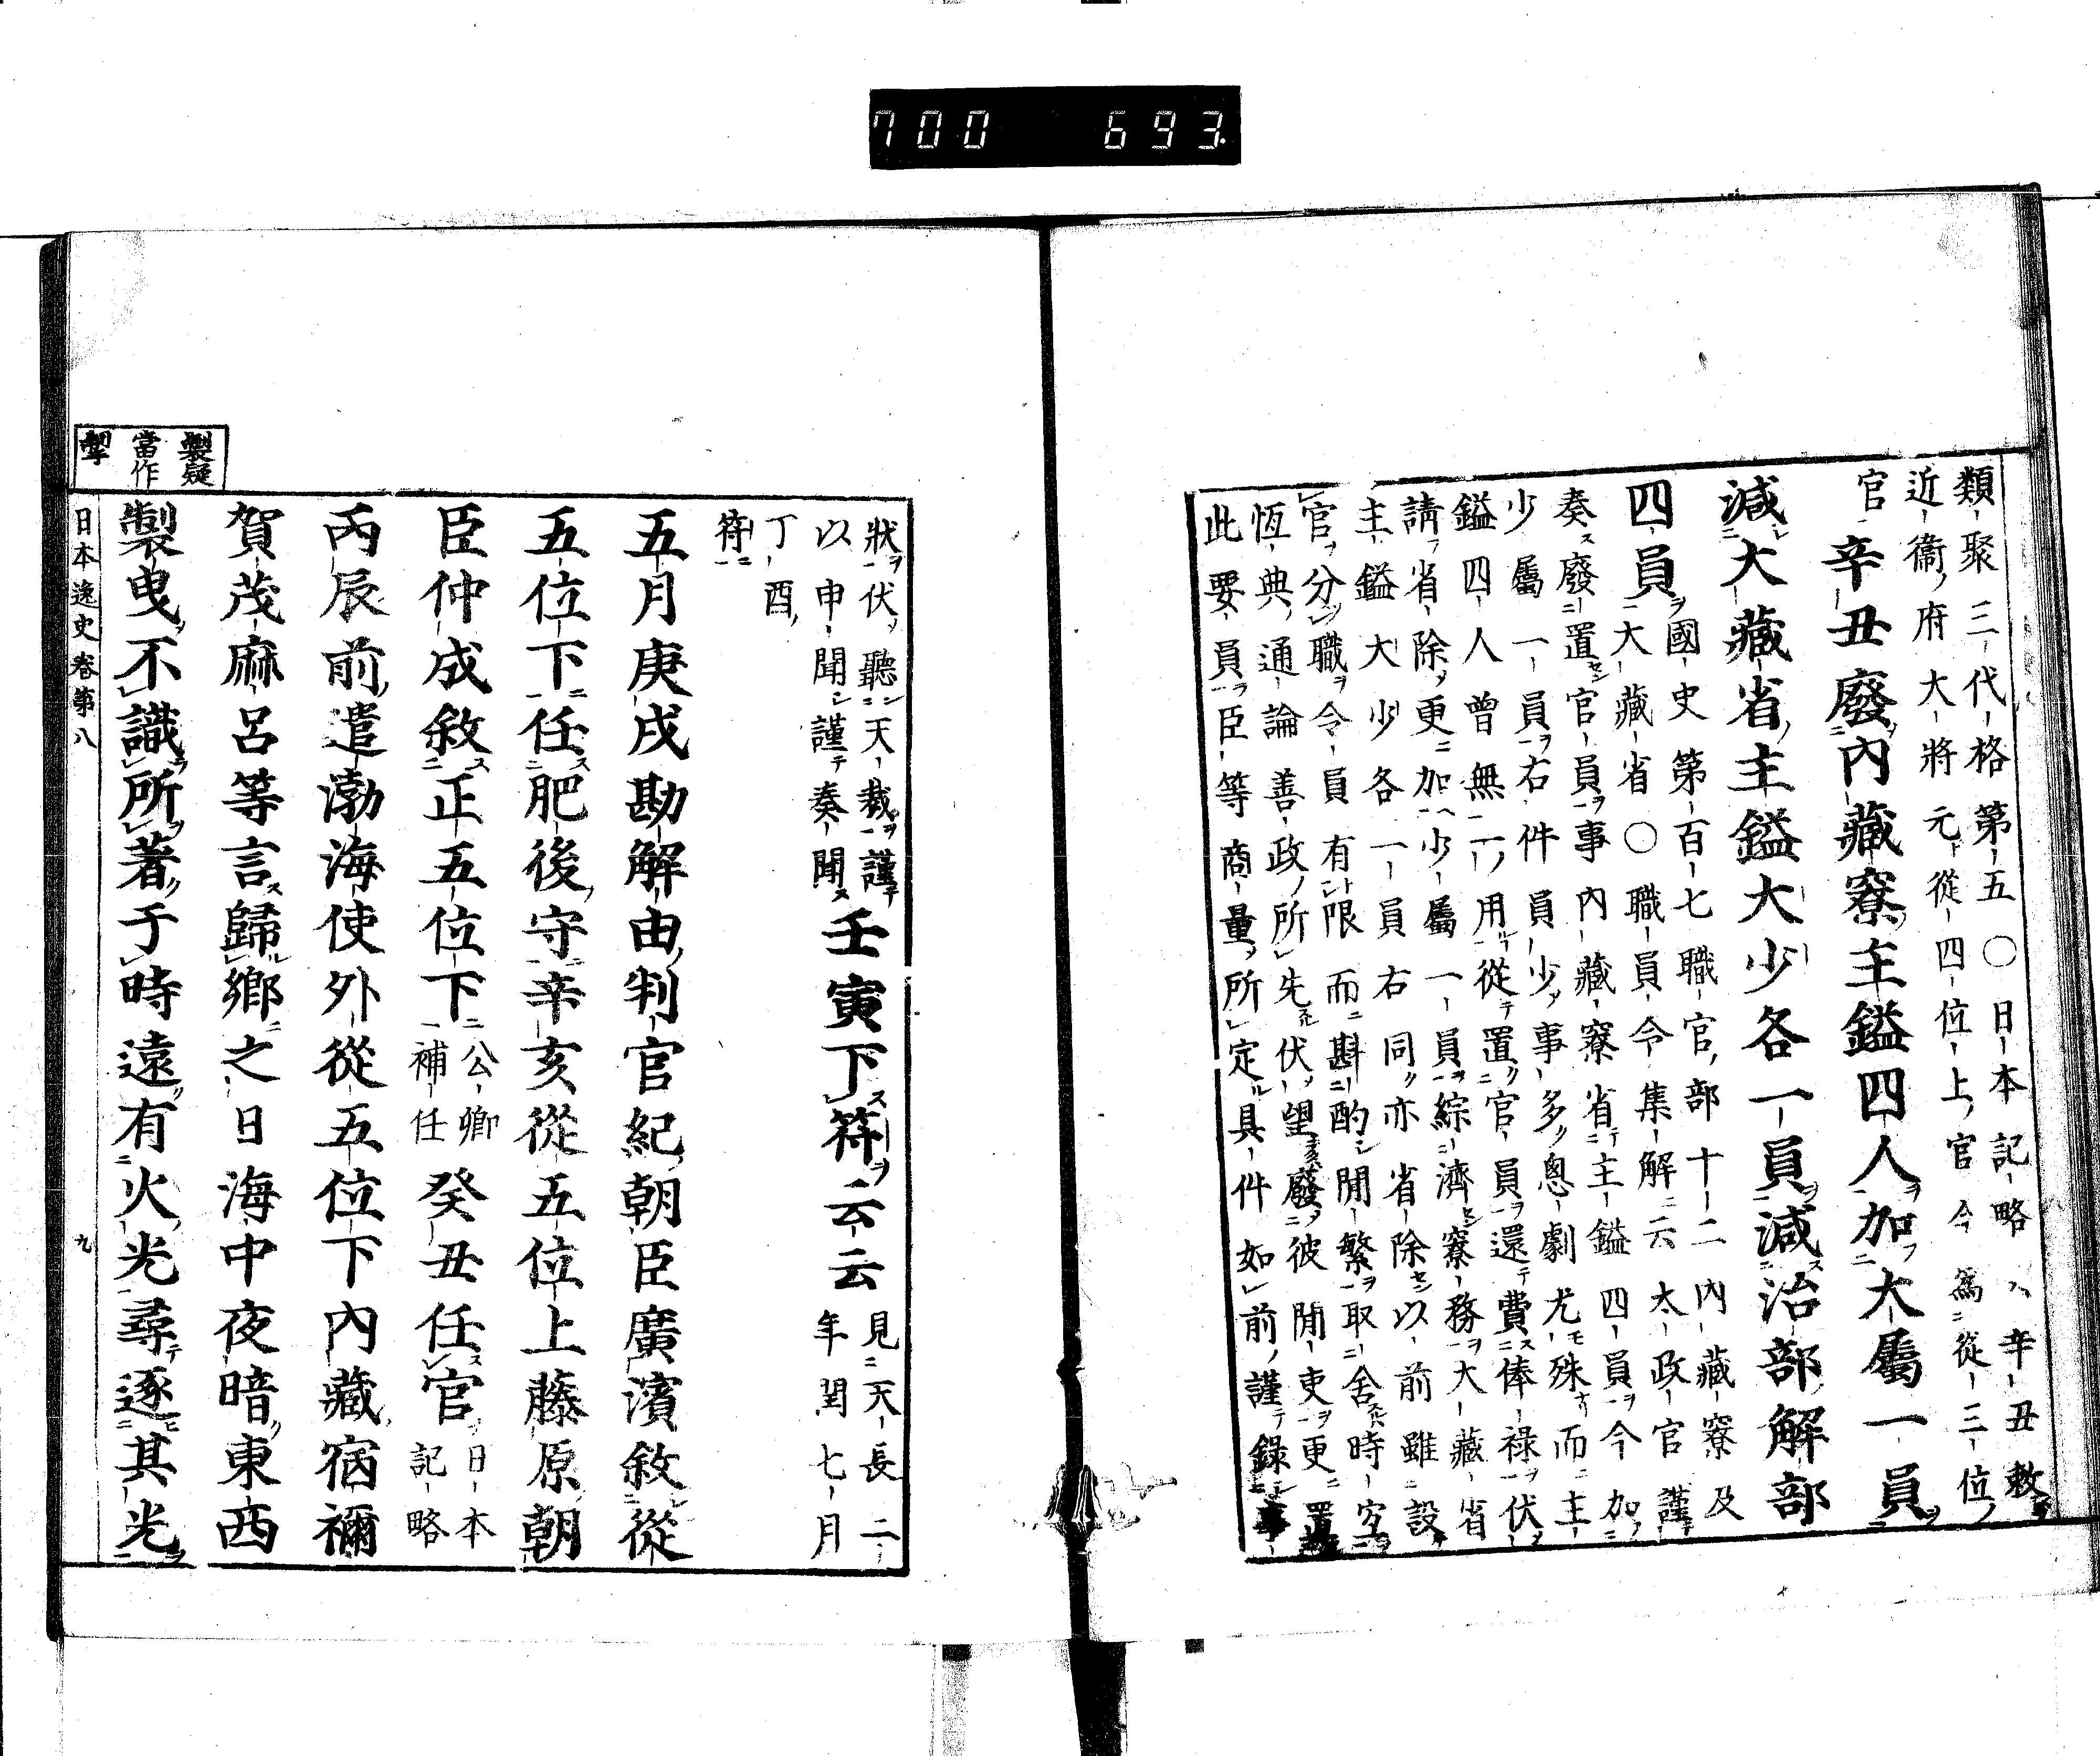 700 693.
類聚三代格第五〇日本記略八辛丑敕
近衞府大將元從四位上官今爲從三位
官
辛丑廢內藏寮主鎰四人加大屬一員
減大藏省主鎰大少各一員減治部解部
四員
國史第百七職官部十二內藏寮及
大藏省〇職員令集解云太政官謹
奏廢置官員事內藏寮省主鎰四員今加
少屬一員右件員少事多怱劇尤殊而主
鎰四人曾無一用從置官員還費俸祿伏
請省除更加少屬一員綜濟寮務大藏省
主鎰大少各一員右同亦省除以前雖設
官分職令員有限而斟酌閒繁取舍時宜
恆典通論善政所先伏望廢彼閒吏更置
此要員臣等商量所定具件如前謹錄事
狀伏聽天裁謹
以申聞謹奏聞
壬寅下符云云
見天長二
年閏七月
丁酉
符
五月庚戌勘解由判官紀朝臣廣濱敘從
五位下任肥後守辛亥從五位上藤原朝
臣仲成敘正五位下
公卿
補任
癸丑任官
日本
記略
丙辰前遣渤海使外從五位下內藏宿禰
賀茂麻呂等言歸鄉之日海中夜暗東西
製曳不識所著于時遠有火光尋逐其光
製疑
當作
掣
日本逸史卷第八
九